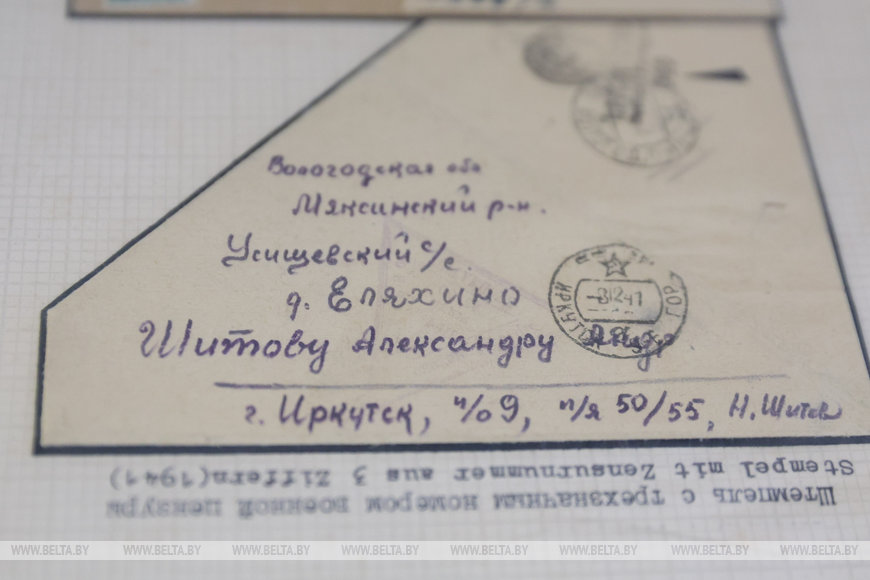 Вологодская обл
Мяксинский р-н.
Усищевский с/с.
д. Еляхино
Шитову Александру Андр
ИРКУТСК
-8 12 41
г. Иркутск, п/о 9, п/я 50/55, Н. Шитов
Штемпель с трехзначным номером военной цензуры
Stempel mit Zensurnummer aus 3 Ziffern(1941)
WWW.BELTA.BY WWW.BELTA.BY WWW.BELTA.BY WWW.BELTA.BY WWW.BELTA.BY WWW.BELTA.BY WWW.BELTA.BY WWW.BELTA.BY